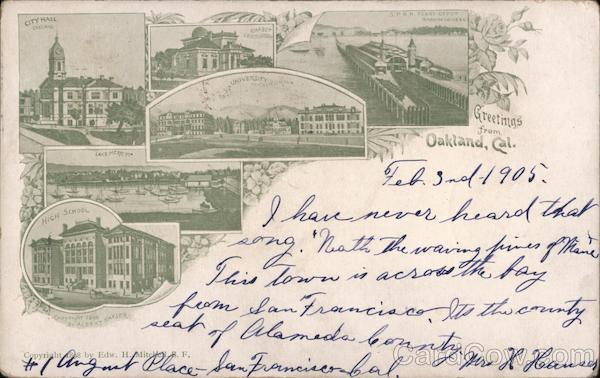 CITY HALL
OAKLAND
UNIVERSITY
S.P.R.R. FERRY DEPOT
Greetings
from
Oakland, Cal.
LAKE MERRITT
HIGH SCHOOL
Feb. 3nd-1905.
I have never heard that
song. "Neath the waving pines of Maine"
This town is across the bay
from San Francisco. Its the county
seat of Alameda County
Copyright 1898 by Edw. H. Mitchell S. F.
#1 August Place - San Francisco - Cal. Mrs H Hansen
CardCow.com